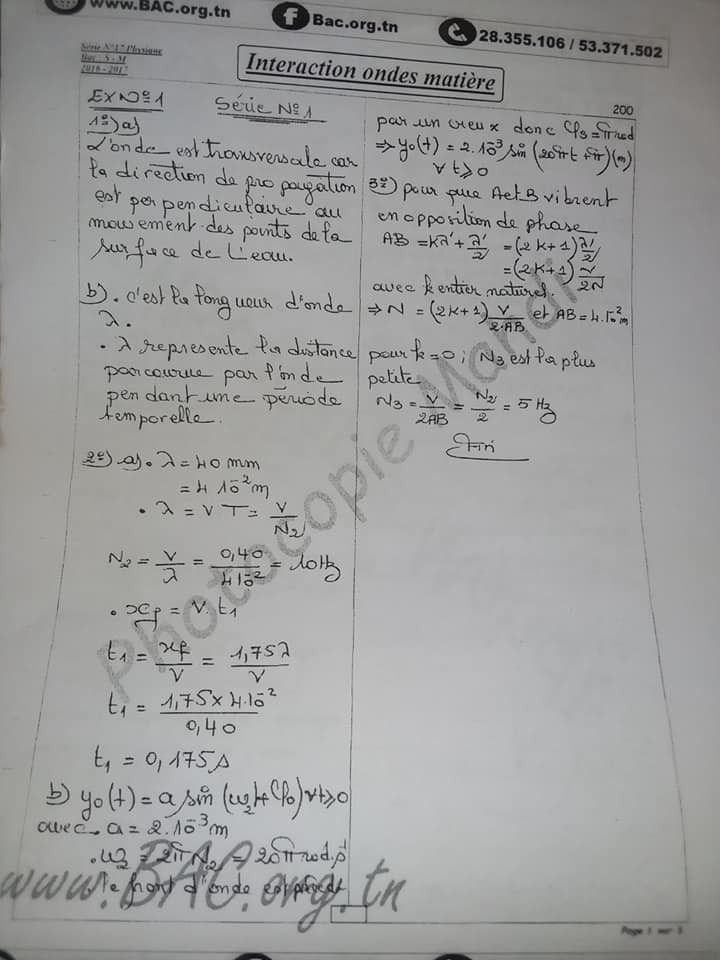 www.BAC.org.tn
Bac.org.tn
28.355.106 / 53.371.502
Série N°17 Physique
Bac : S - M
2016 - 2017
Interaction ondes matière
200
EX N°1
Série N°1
1°) a)
L'onde est transversale car
la direction de propagation
est perpendiculaire au
mouvement des points de la
surface de l'eau.
b) . c'est la longueur d'onde
λ.
. λ represente la distance
parcourue par l'onde
pendant une période
temporelle.
2°) a) . λ = 40 mm
= 4 10⁻² m
. λ = V T = V/N₂
N₂ = V/λ = 0,40/4 10⁻² = 10 Hz
. xf = V. t₁
t₁ = xf/V = 1,75λ/V
t₁ = 1,75 × 4.10⁻²/0,40
t₁ = 0,175 s
b) y₀(t) = a sin (ω₂t + φ₀) ∀ t ≥ 0
avec . a = 2.10⁻³ m
. ω₂ = 2π N₂ = 20π rad.s⁻¹
. le front d'onde est précédé
par un creux donc φs = π rad
⇒ y₀(t) = 2.10⁻³ sin (20πt + π) (m)
∀ t ≥ 0
3°) pour que A et B vibrent
en opposition de phase
AB = Kλ' + λ'/2 = (2K+1) λ'/2
= (2K+1) V/2N
avec k entier naturel
⇒ N = (2K+1) V/2.AB et AB = 4.10⁻² m
pour k = 0 ; N₃ est la plus
petite
N₃ = V/2AB = N₂/2 = 5 Hz
Fin
Photocopie Mandi
www.BAC.org.tn
Page 1 sur 5